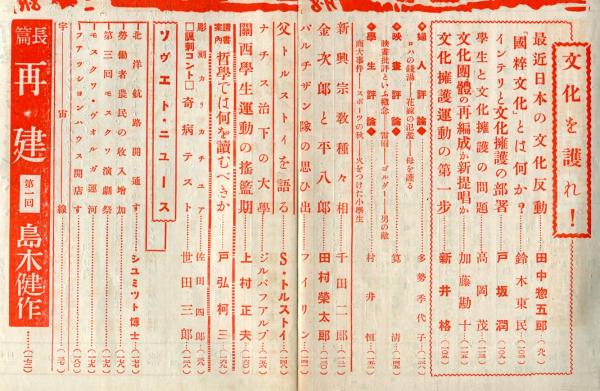 文化を護れ!
最近日本の文化反動 田中惣五郎
「國粹文化」とは何か? 鈴木東民
インテリと文化擁護の部署 戸坂潤
學生と文化擁護の問題 高岡茂
文化團體の再編成か新提唱か 加藤勘十
文化擁護運動の第一步 新井格
◆婦人評論◆
ロハの錢湯――花嫁の氾濫――母を護る 多勢季代子
◆映畫評論◆
映畫批評といふ概念――雷雨――ゴルダー――男の敵 筧清
◆學生評論◆
商大事件――スポーツの秋――火をつけた小學生 村井恒
新興宗教種々相 千田二郎
金次郎と平八郎 田村榮太郎
パルチザン隊の思ひ出 フイリン
父トルストイを語る S・トルストイ
ナチス治下の大學 ジルバフアルブ
關西學生運動の搖籃期 上村正夫
讀書案内 哲學では何を讀むべきか 戸弘柯三
彫刻カリカチユア 佐田四郎
□諷刺コント□ 奇病テスト 世田三郎
ソヴエト・ニユース
北洋航路開通す シユミツト博士
勞働者農民の收入增加
第三回モスクワ演劇祭
モスクワ・ヴオルガ運河
フアツシヨンハウス開店す
宇宙線
長篇 再・建 第一回 島木健作